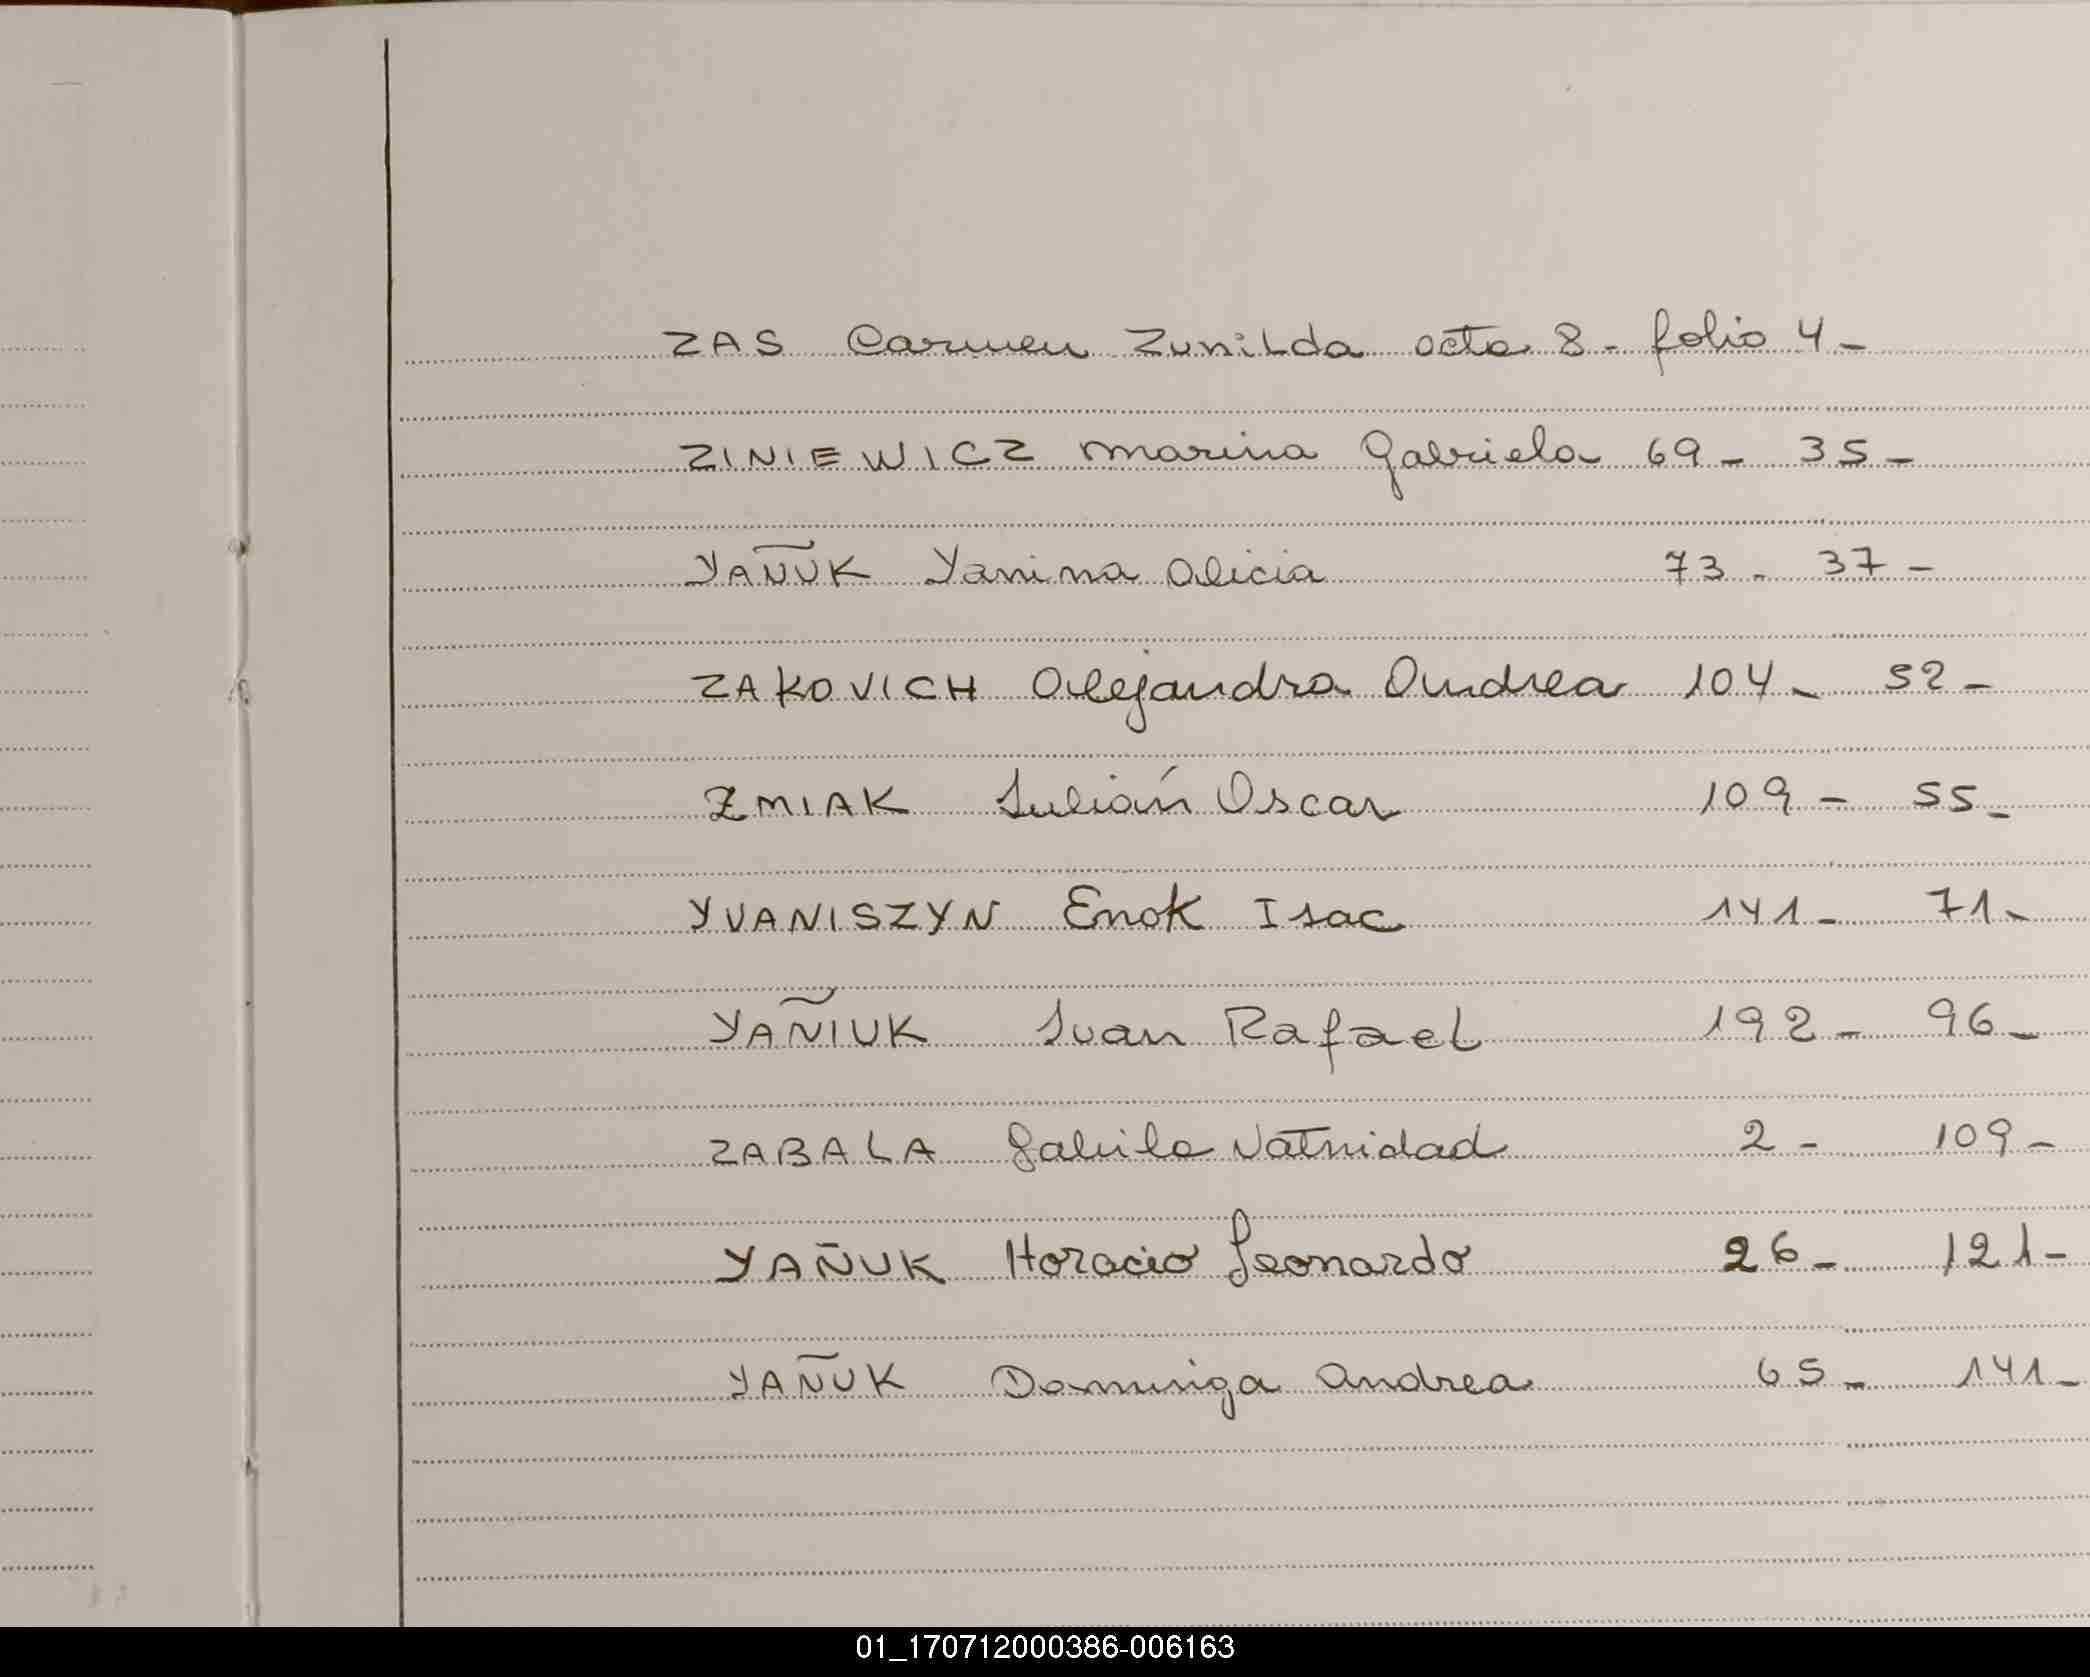 ZAS Carmen Zunilda acta 8 - folio 4 -
ZINIEWICZ Marina Gabriela 69 - 35 -
YAÑUK Yanina Alicia 73 - 37 -
ZAKOVICH Alejandra Andrea 104 - 52 -
ZMIAK Julián Oscar 109 - 55 -
YVANISZYN Enok Isac 141 - 71 -
YAÑIUK Ivan Rafael 192 - 96 -
ZABALA 2 - 109 -
YAÑUK Horacio Leonardo 26 - 121 -
YAÑUK Dominga Andrea 65 - 141 -
01_170712000386-006163